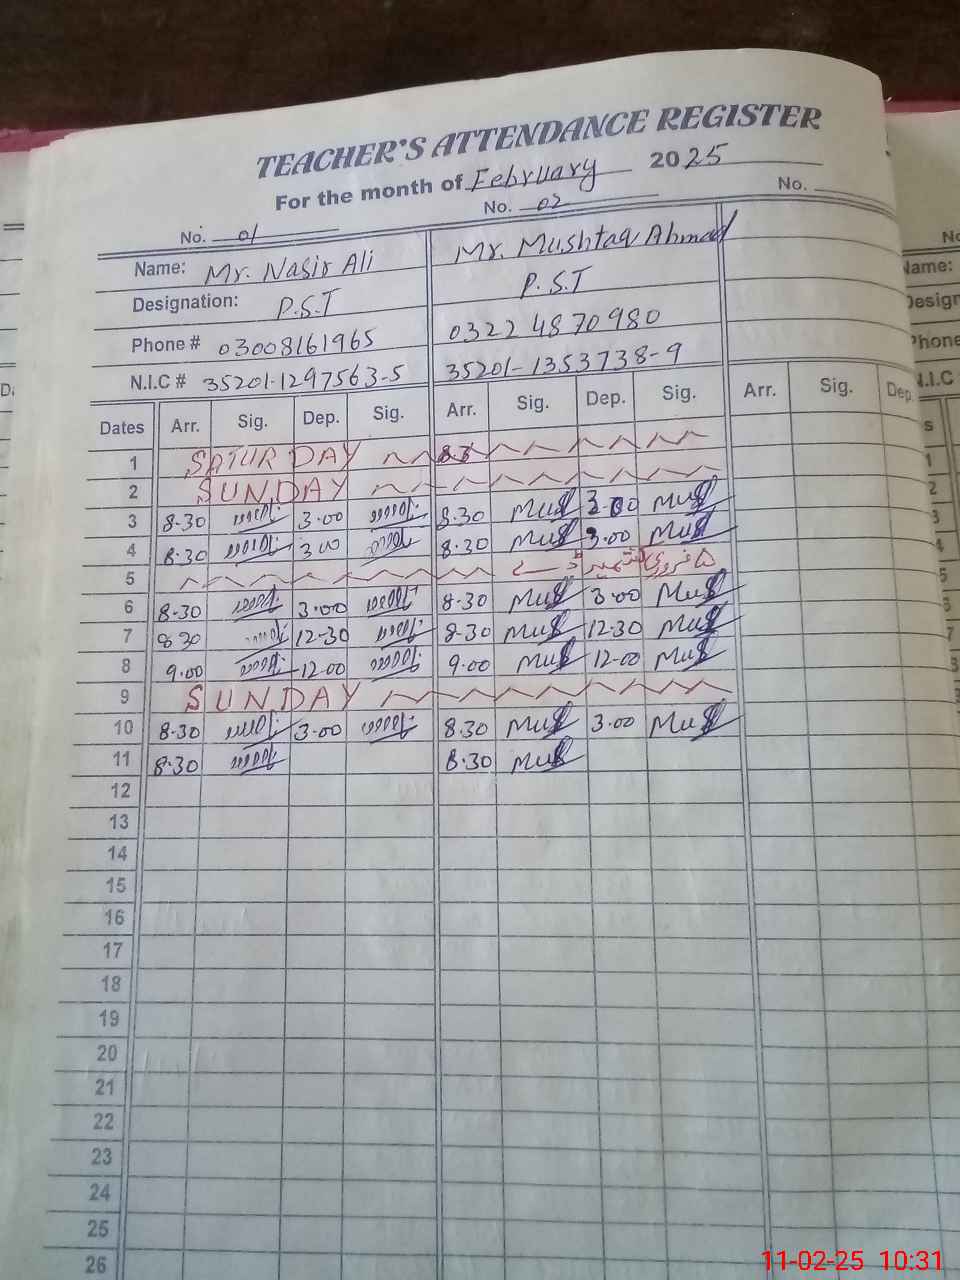 TEACHER'S ATTENDANCE REGISTER
For the month of February 2025
No. 01 No. 02 No.
Name: Mr. Nasir Ali Mr. Mushtaq Ahmad
Designation: P.S.T P.S.T
Phone # 03008161965 03224870980
N.I.C # 35201-1297563-5 35201-1353738-9
Dates Arr. Sig. Dep. Sig. Arr. Sig. Dep. Sig. Arr. Sig. Dep.
1 SATURDAY
2 SUNDAY
3 8-30 3-00 8.30 Mus 3.00 Mus
4 8.30 3.00 8.30 Mus 3.00 Mus
5 ۵ فروری کشمیر ڈے
6 8-30 3-00 8-30 Mus 3.00 Mus
7 8.30 12-30 8-30 Mus 12.30 Mus
8 9.00 12-00 9.00 Mus 12-00 Mus
9 SUNDAY
10 8-30 3-00 8.30 Mus 3.00 Mus
11 8-30 8.30 Mus
12
13
14
15
16
17
18
19
20
21
22
23
24
25
26
Name:
Phone
N.I.C
11-02-25 10:31